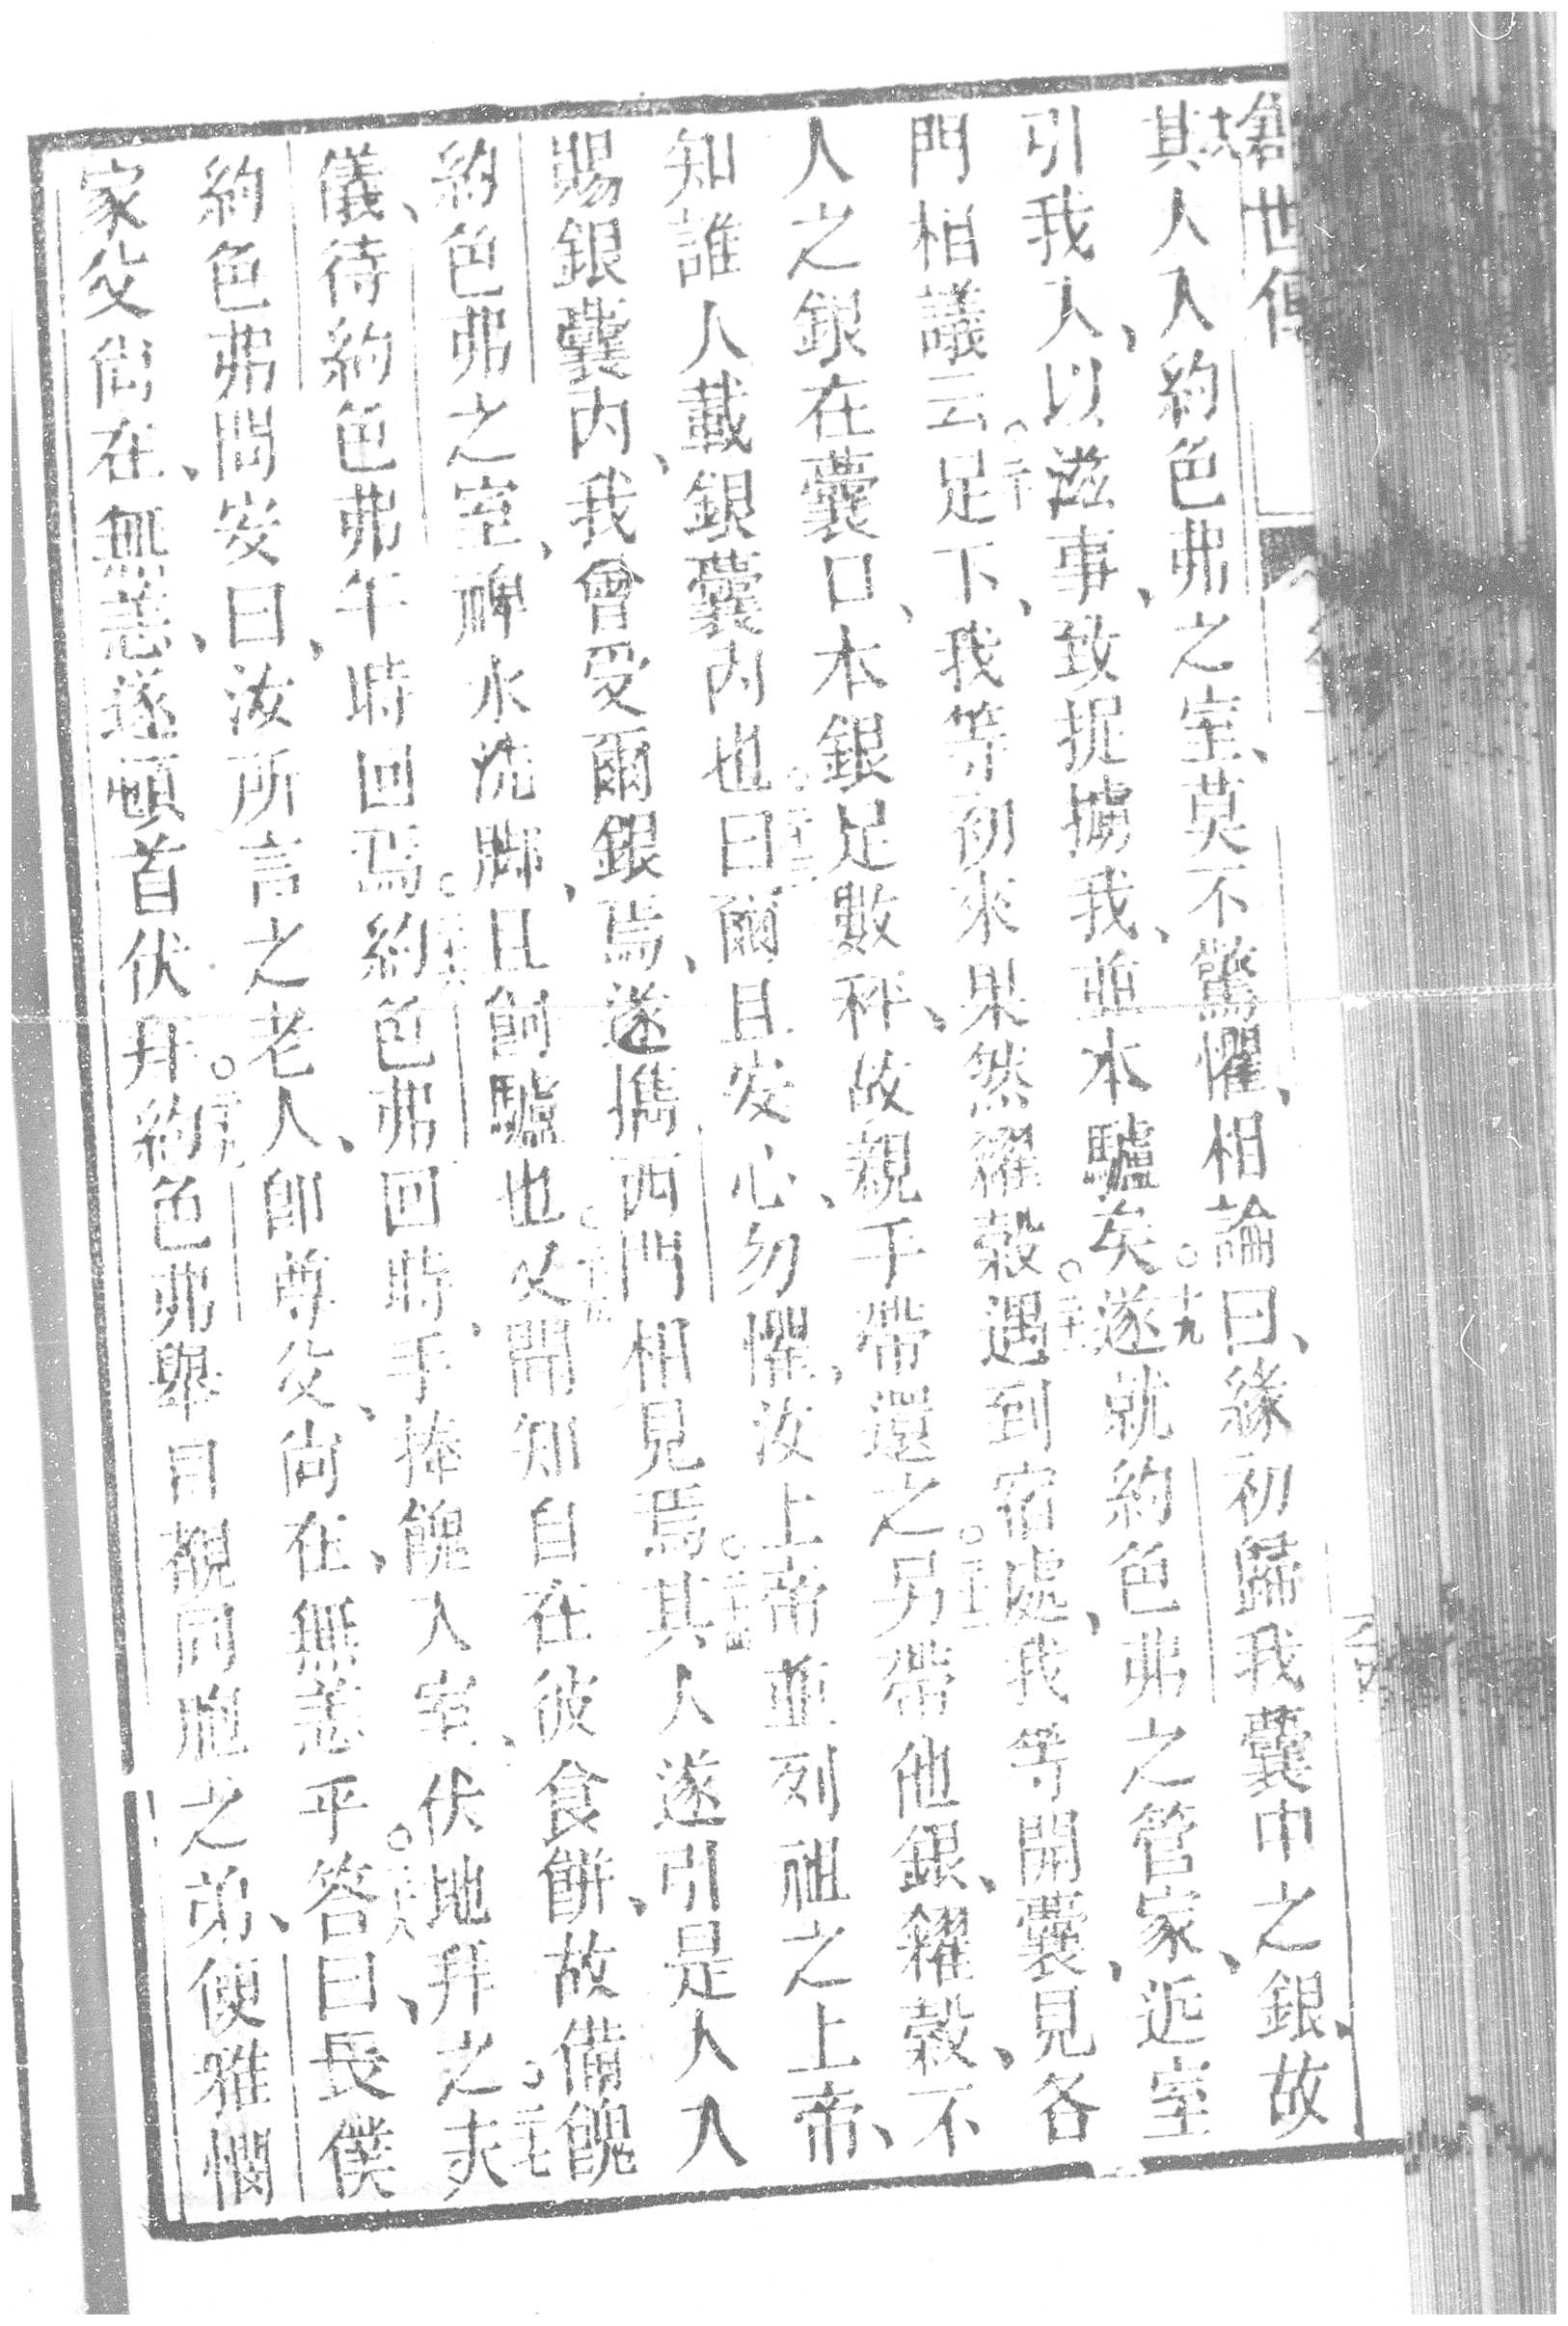 創世傳
其人入約色弗之室、莫不驚懼、相論曰、緣初歸我囊中之銀、故
引我人、以滋事、致捉擄我、並本驢矣○十九遂就約色弗之管家、近室
門相議云○二十足下、我等初來果然糴穀○二十一遇到宿處、我等開囊、見各
人之銀在囊口、本銀足數秤、故親手帶還之○二十二另帶他銀、糴穀、不
知誰人載銀囊內也○二十三曰爾且安心、勿懼、汝上帝並列祖之上帝、
賜銀囊內、我曾受爾銀焉、遂攜西門相見焉○二十四其人遂引是人入
約色弗之室、裨水洗脚、且飼驢也○二十五又聞知自在彼食餅、故備餽
儀、待約色弗午時回焉○二十六約色弗回時、手捧餽入室、伏地拜之○二十七夫
約色弗問安曰、汝所言之老人、卽尊父、尚在、無恙乎○二十八答曰、長僕
家父尚在、無恙、遂頓首伏拜○二十九約色弗舉目觀同胞之弟、便雅憫